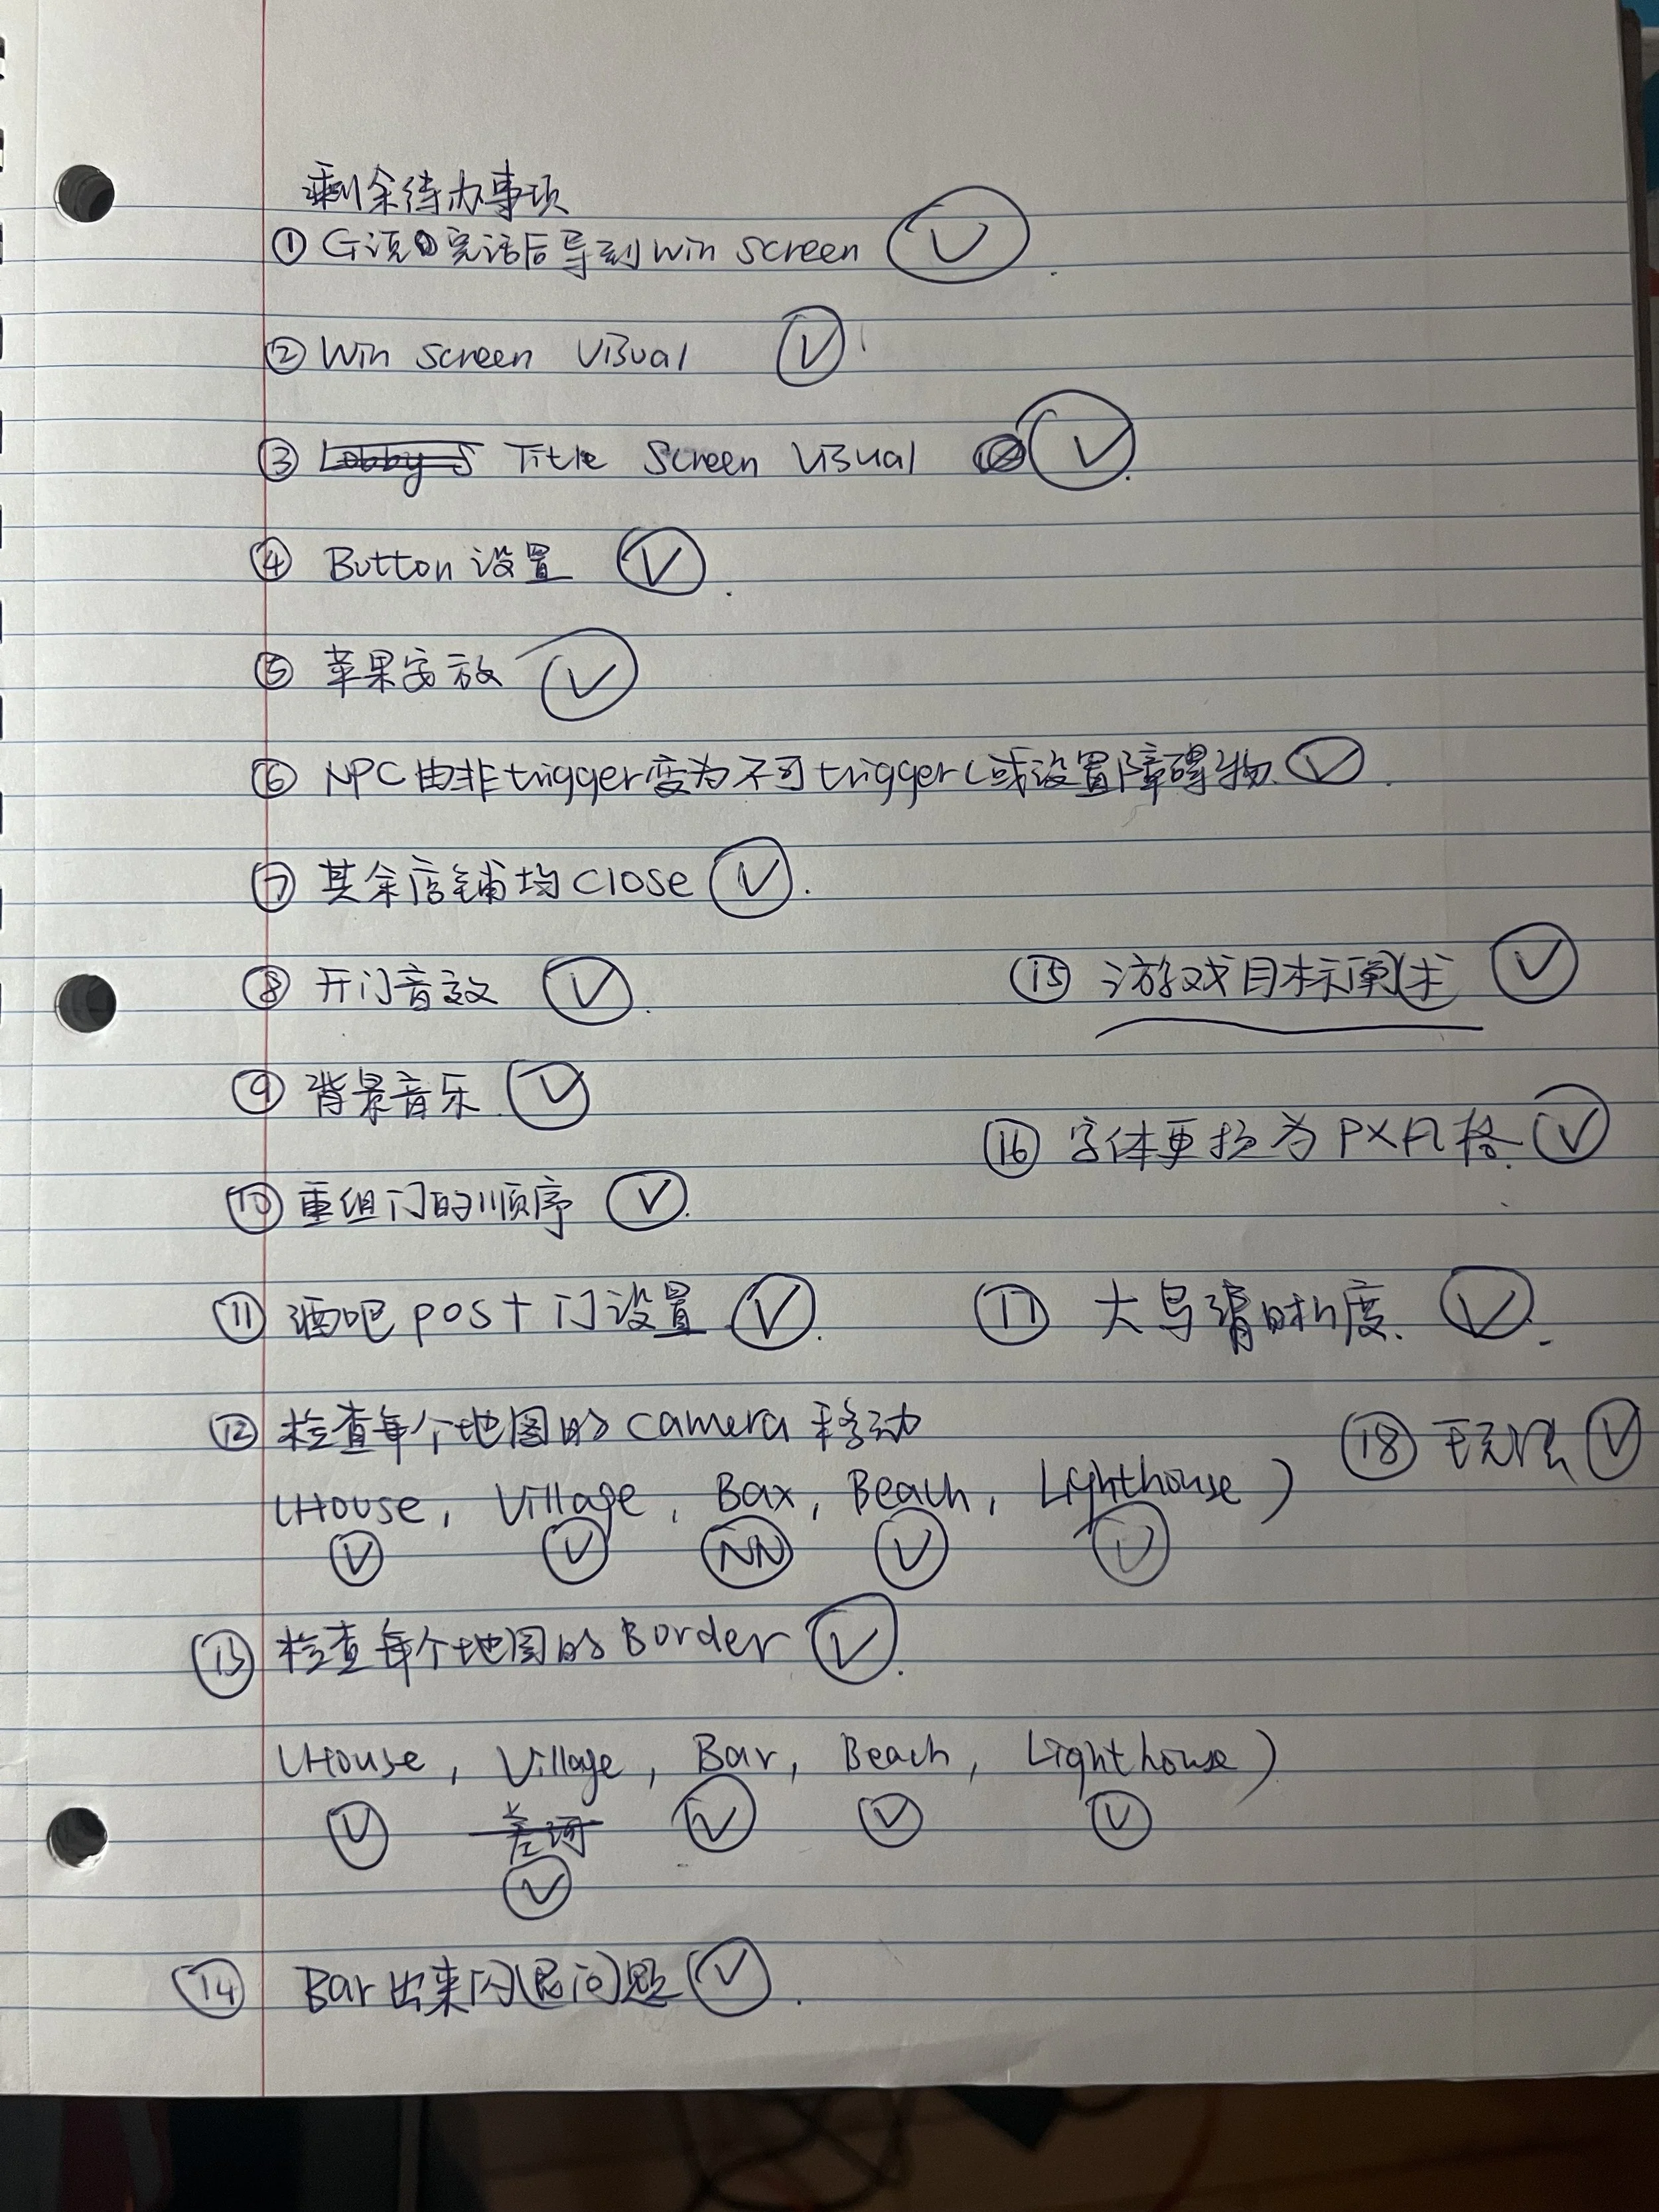 剩余待办事项
① G读完话后导到win screen Ⓥ
② Win screen Visual Ⓥ
③ Title Screen Visual Ⓥ
④ Button 设置 Ⓥ
⑤ 苹果安放 Ⓥ
⑥ NPC由非trigger变为不可trigger(或设置障碍物 Ⓥ
⑦ 其余店铺均close Ⓥ
⑧ 开门音效 Ⓥ
⑨ 背景音乐 Ⓥ
⑩ 重组门的顺序 Ⓥ
⑪ 酒吧post门设置 Ⓥ
⑫ 检查每个地图的camera移动
(House, Village, Bar, Beach, Lighthouse)
Ⓥ Ⓥ NN Ⓥ Ⓥ
⑬ 检查每个地图的Border Ⓥ
(House, Village, Bar, Beach, Lighthouse)
Ⓥ Ⓥ Ⓥ Ⓥ
Ⓥ
⑭ Bar出来闪退问题 Ⓥ
⑮ 游戏目标阐述 Ⓥ
⑯ 字体更换为PX风格 Ⓥ
⑰ 大鸟清晰度 Ⓥ
⑱ Ⓥ